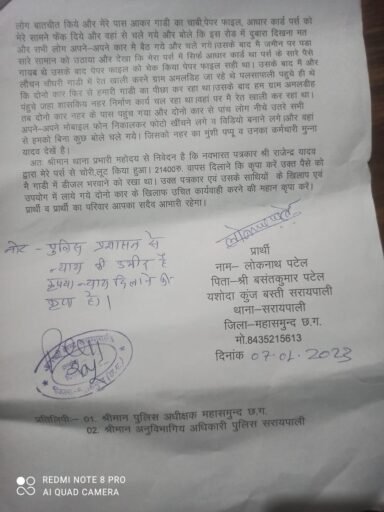 लोग बातचीत किये और मेरे पास आकर गाडी का चाबी,पेपर फाइल, आधार कार्ड पर्स को
मेरे सामने फेंक दिये और वहां से चले गये और बोले कि इस रोड में दुबारा दिखना मत
और सभी लोग अपने–अपने कार मे बैठ गये और चले गये।उसके बाद मै जमीन पर पडा
सारे सामान को उठाया और देखा कि मेरा पर्स में सिर्फ आधार कार्ड था पर्स के सारे पैसे
गायब थे उसके बाद पेपर फाइल को चेक किया पेपर फाइल सही था। उसके बाद मैं और
लोचन चौधरी गाडी में रेत खाली करने ग्राम अमलडिह जा रहे थे पलसापाली पहुचे ही थे
कि दोनो कार फिर से हमारी गाडी का पीछा कर रहा था।उसके बाद हम ग्राम अमलडीह
पहुचे जहा शासकिय नहर निर्माण कार्य चल रहा था।वहां पर मै रेत खाली कर रहा था।
तब दोनो कार नहर के पास पहुंच गया और दोनो कार से पांच लोग नीचे उतरे सभी
अपने–अपने मोबाइल फोन निकालकर फोटो खींचने लगे व विडियो बनाने लगे।और वहा
से हमको बिना कुछ बोले चले गये। जिसको नहर का मुंशी पप्पू व उनका कर्मचारी मुन्ना
यादव देखें है।
अतः श्रीमान थाना प्रभारी महोदय से निवेदन है कि नवभारत पत्रकार श्री राजेन्द्र यादव
द्वारा मेरे पर्स से चोरी,लूट किया हुआ। 21400रु. वापस दिलाने कि कृपा करें उक्त पैसे को
मै गाडी में डीजल भरवाने को रखा था। उक्त पत्रकार एवं उसके साथियों के खिलाप एवं
उपयोग में लाये गये दोनो कार के खिलाप उचित कार्यवाही करने की महान कृपा करें।
प्रार्थी व प्रार्थी का परिवार आपका सदैव आभारी रहेगा।
नोट - पुलिस प्रशासन से
न्याय की उम्मीद है
कृपया न्याय दिलाने की
कृपा हो।
प्रार्थी
नाम– लोकनाथ पटेल
पिता–श्री बसंतकुमार पटेल
यशोदा कुंज बस्ती सरायपाली
थाना–सरायपाली
जिला–महासमुन्द छ.ग.
मो.8435215613
दिनांक 07-01-2023
प्रतिलिपी– 01. श्रीमान पुलिस अधीक्षक महासमुन्द छ.ग.
02. श्रीमान अनुविभागीय अधिकारी पुलिस सरायपाली
REDMI NOTE 8 PRO
AI QUAD CAMERA